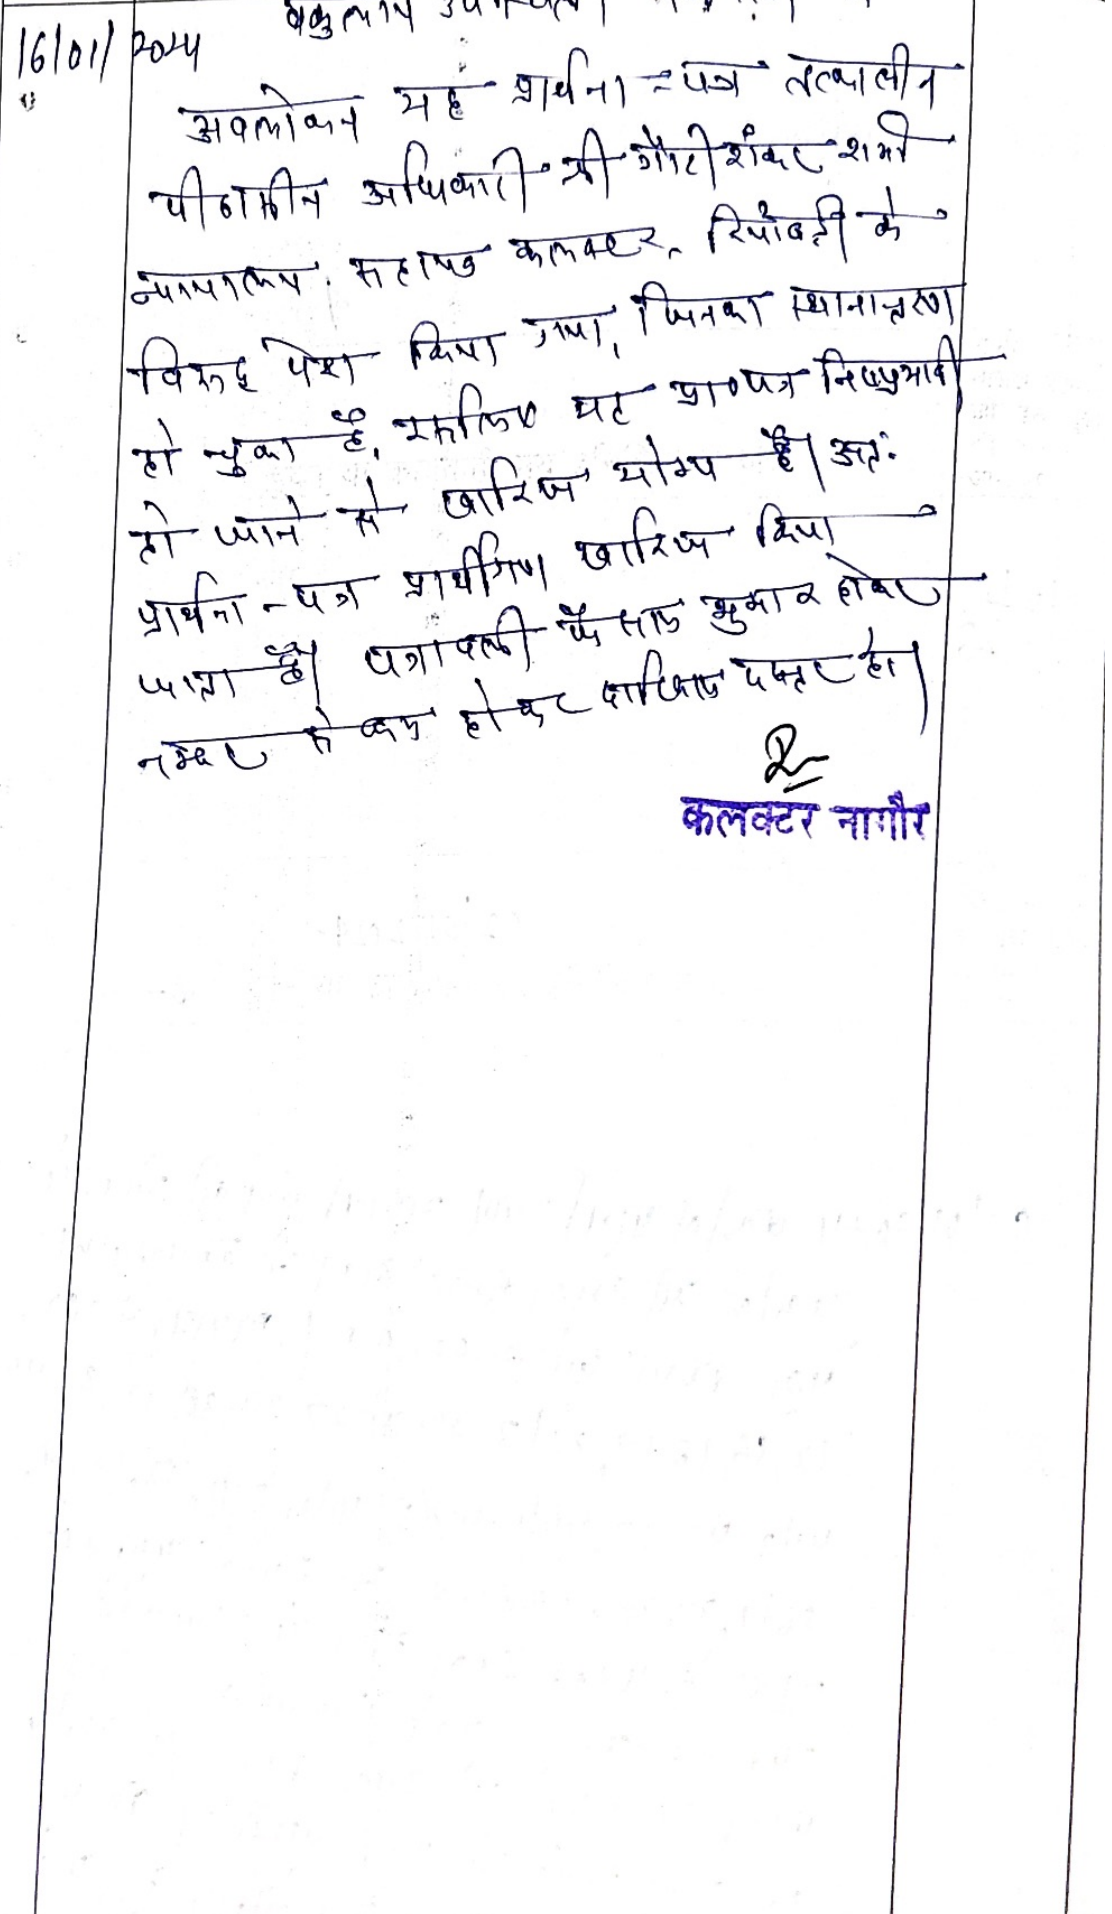 वकुलाय उपस्थित।
16/01/2024
अवलोकन यह प्रार्थना-पत्र तत्कालीन
पीठासीन अधिकारी श्री गौरी शंकर शर्मा
न्यायालय सहायक कलक्टर, रियांबड़ी के
विरूद्ध पेश किया गया, जिनका स्थानान्तरण
हो चुका है, इसलिए यह प्रा०पत्र निष्प्रभावी
हो जाने से खारिज योग्य है। अतः
प्रार्थना-पत्र प्रार्थीगण खारिज किया
जाता है। पत्रावली फैसल शुमार होकर
नम्बर से कम होकर दाखिल दफ्तर हो।
कलक्टर नागौर